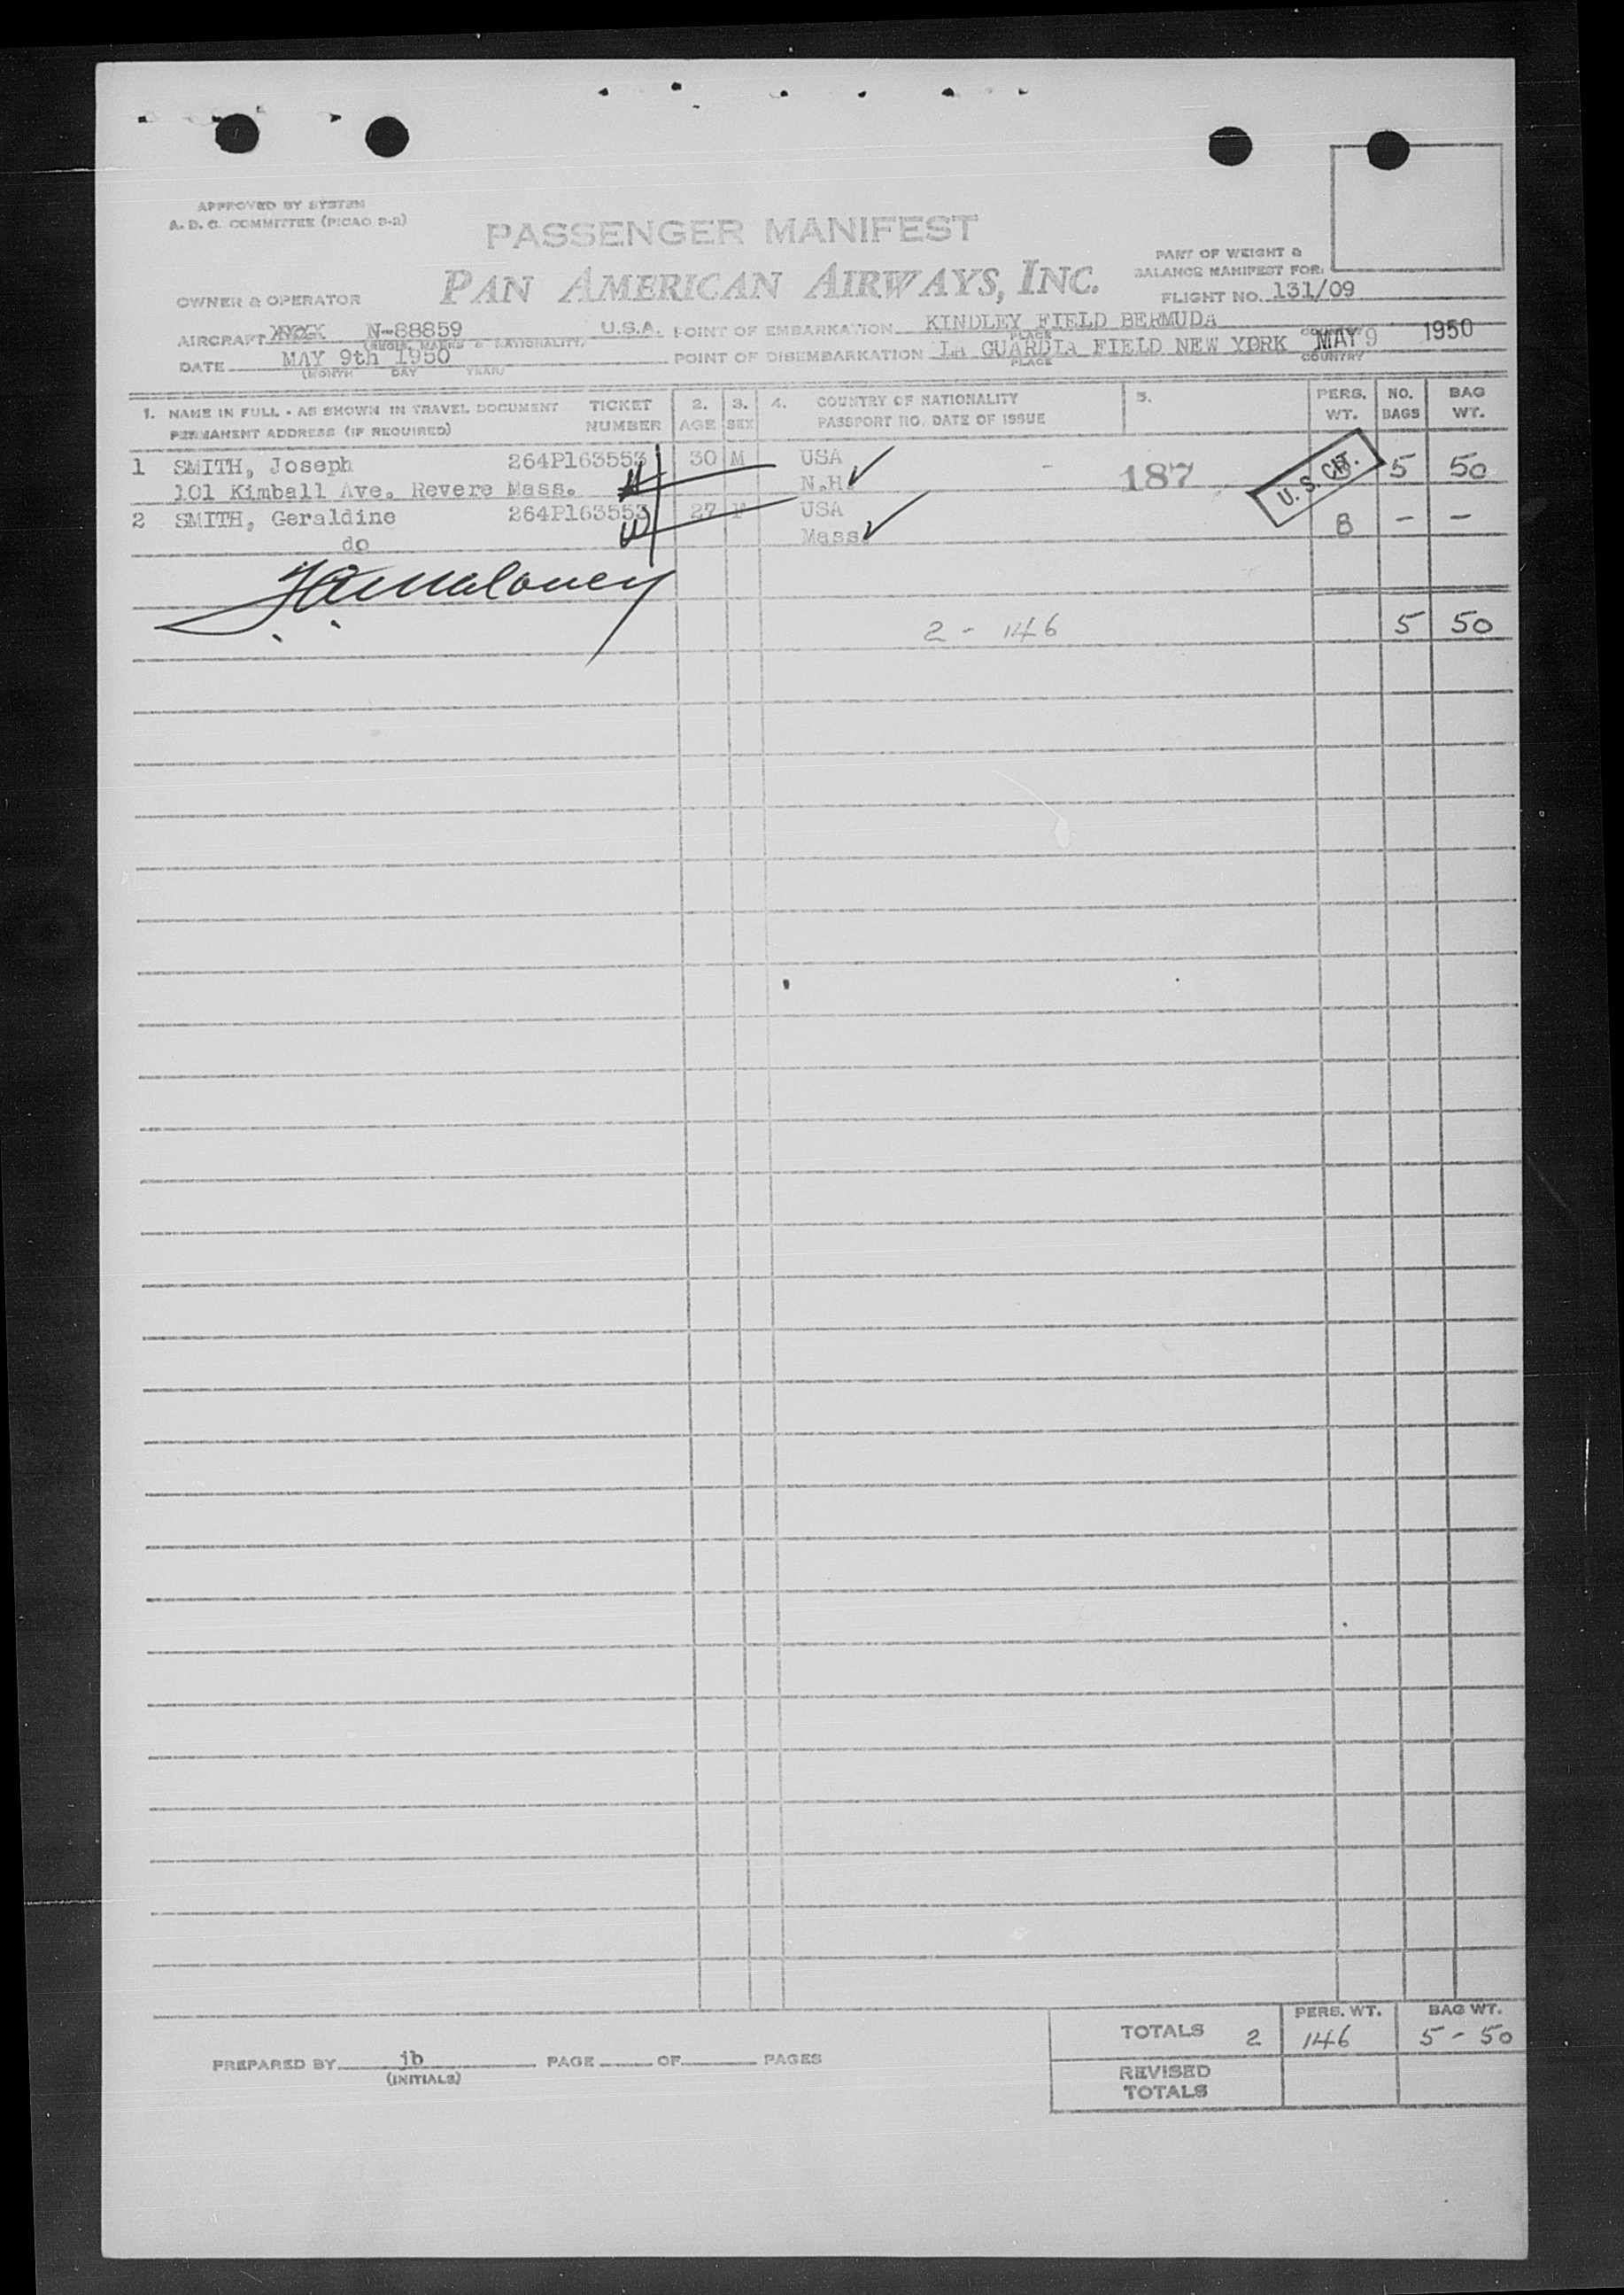 APPROVED BY SYSTEM
A. D. C. COMMITTEE (PICAO S-2)
PASSENGER MANIFEST
PAN AMERICAN AIRWAYS, INC.
PART OF WEIGHT &
BALANCE MANIFEST FOR:
FLIGHT NO. 131/09
OWNER & OPERATOR
AIRCRAFT N-88859 U.S.A. POINT OF EMBARKATION KINDLEY FIELD BERMUDA
PLACE
DATE MAY 9th 1950 POINT OF DISEMBARKATION LA GUARDIA FIELD NEW YORK MAY 9 1950
(MONTH DAY YEAR) PLACE COUNTRY
1. NAME IN FULL - AS SHOWN IN TRAVEL DOCUMENT TICKET 2. 3. 4. COUNTRY OF NATIONALITY 5. PERS. NO. BAG
PERMANENT ADDRESS (IF REQUIRED) NUMBER AGE SEX PASSPORT NO. DATE OF ISSUE WT. BAGS WT.
1 SMITH, Joseph 264P163553 30 M USA 187 U. S. CIT. 5 50
101 Kimball Ave. Revere Mass. N.H.
2 SMITH, Geraldine 264P163553 27 F USA 8 - -
do Mass.
2 - 146 5 50
TOTALS 2 PERS. WT. 146 BAG WT. 5 - 50
PREPARED BY jb PAGE OF PAGES
(INITIALS)
REVISED
TOTALS